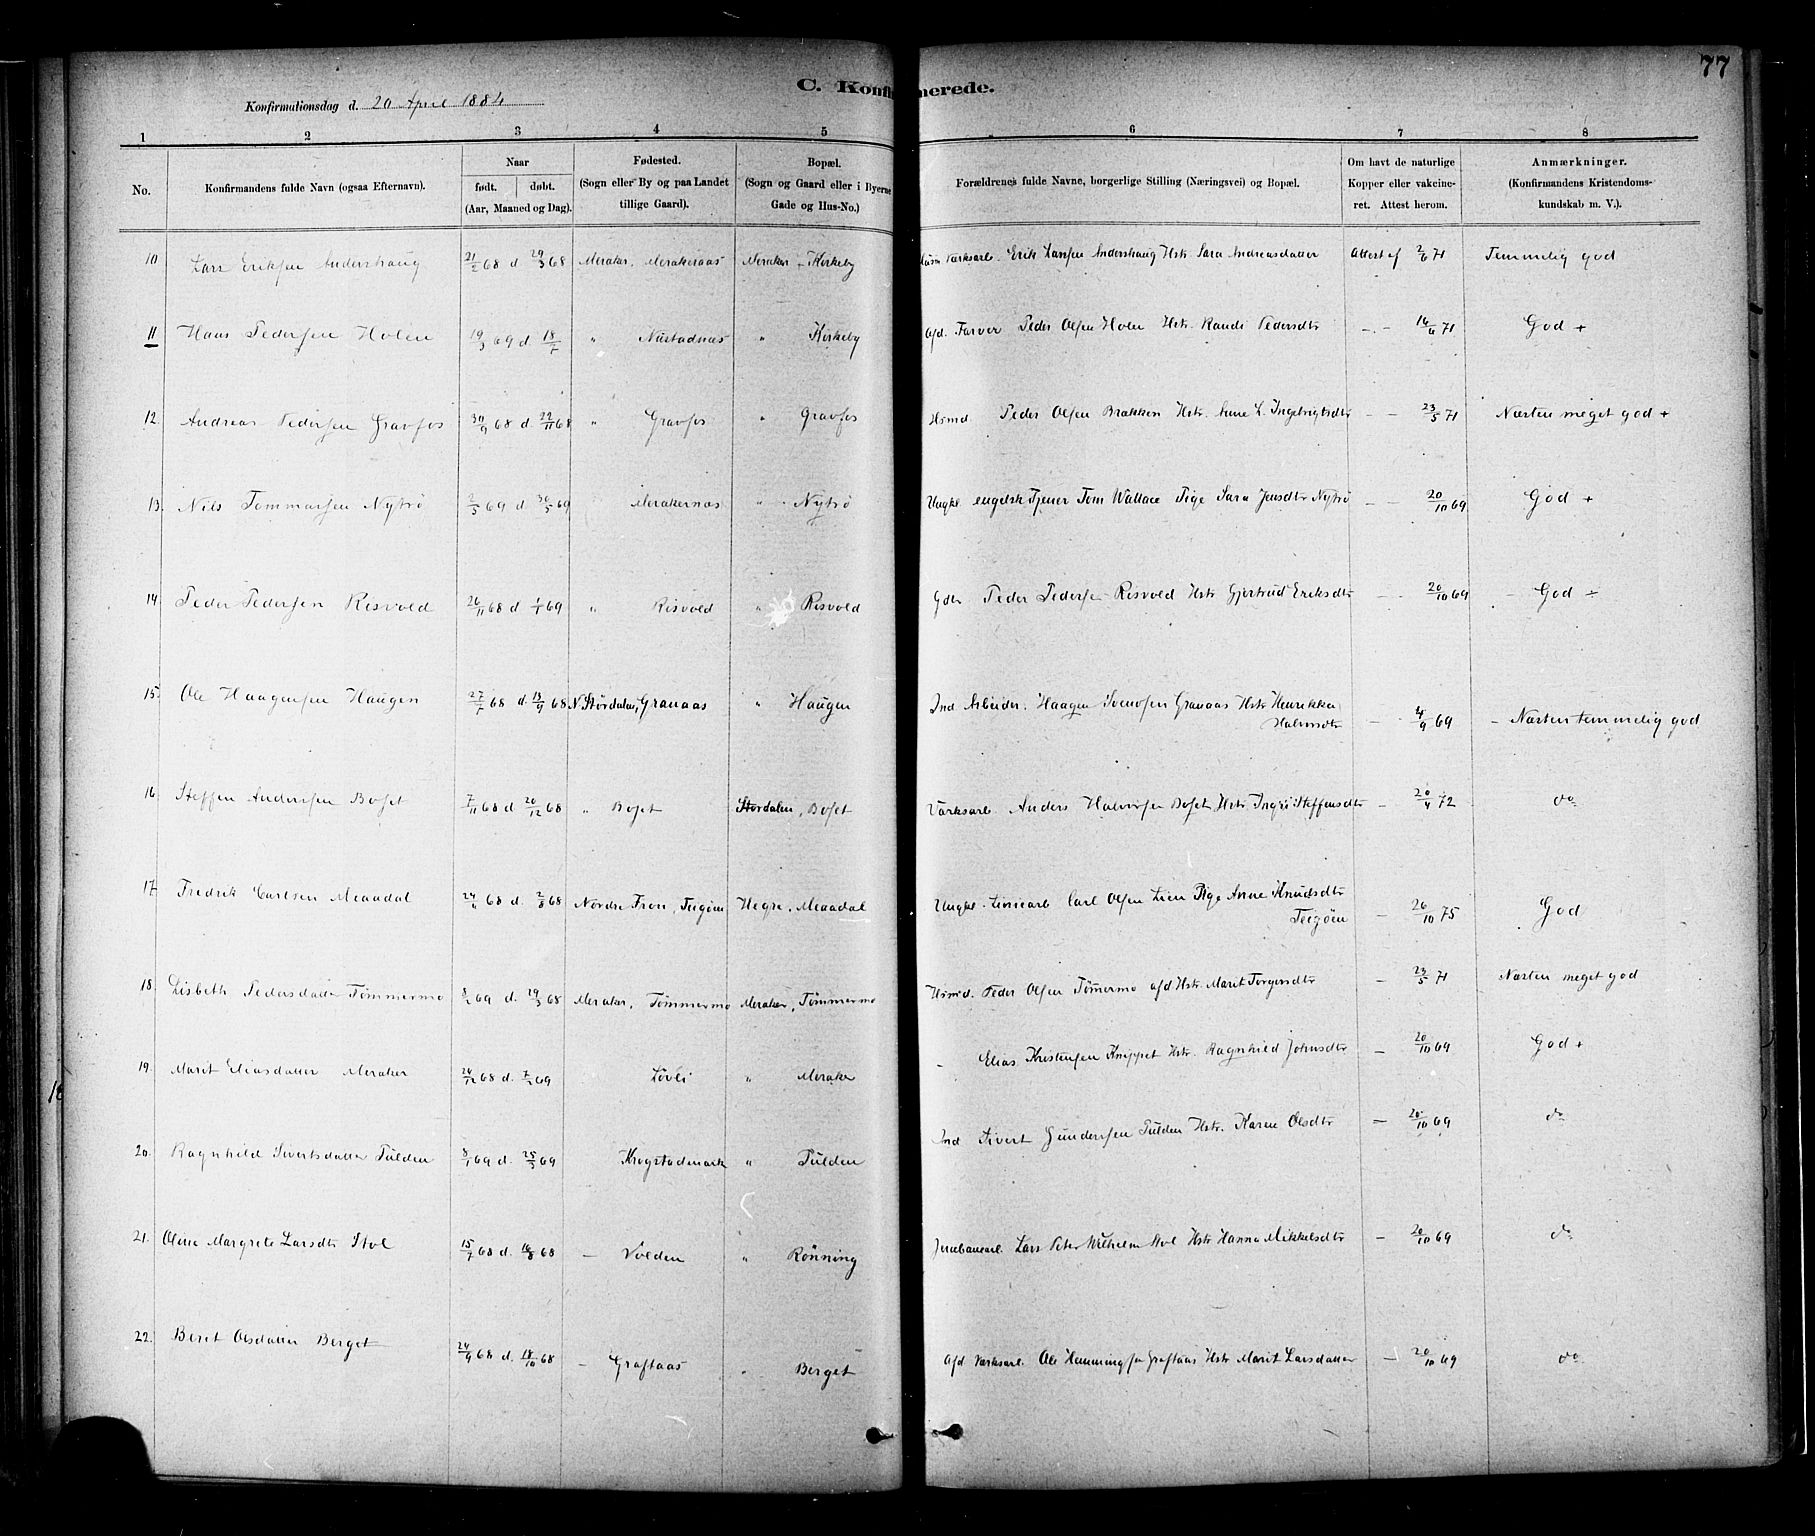 77
C. Konfirmerede.
Konfirmationsdag d. 20 April 1884
1 2 3 4 5 6 7 8
No. Konfirmandens fulde Navn (ogsaa Efternavn). Naar født. døbt. (Aar, Maaned og Dag). Fødested. (Sogn eller By og paa Landet tillige Gaard). Bopæl. (Sogn og Gaard eller i Byerne Gade og Hus-No.) Forældrenes fulde Navne, borgerlige Stilling (Næringsvei) og Bopæl. Om havt de naturlige Kopper eller vakcineret. Attest herom. Anmærkninger. (Konfirmandens Kristendomskundskab m. V.).
10 Lars Eriksen Andershaug 21/2 68 d 29/3 68 Meraker, Merakeraas Meraker Kirkeby Værksarb. Erik Larsen Andershaug Hstr Sara Andreasdatter Attest af 2/6 71 Temmelig god
11 Hans Pedersen Holen 19/3 69 d. 18/7 " Nustadnæs " Kirkeby Afd. Farver Peder Olsen Holen Hstr. Randi Pedersdtr - - 16/6 71 God +
12. Andreas Pedersen Gravfos 30/9 68 d. 22/11 68 " Gravfos " Gravfos Hsmd. Peder Olsen Brækken Hstr. Anne L. Ingebrigtsdtr - - 23/5 71 Næsten meget god +
13. Nils Tommassen Nytrø 2/3 69 d 30/5 69 Merakernæs " Nytrø Ungkl. engelsk Tjener Tom Wallace Pige Sara Jensdtr Nytrø - - 20/10 69 God +
14. Peder Pedersen Risvold 26/11 68 d 1/1 69 " Risvold " Risvold Gdbr Peder Pedersen Risvold Hstr Gjertrud Eriksdtr - - 20/10 69 - God +
15. Ole Haagensen Haugen 27/7 68 d. 13/9 68 N. Stördalen, Granaas " Haugen Ind Arbeider. Haagen Svendsen Granaas Hstr Henrikka Halvorsdtr - 4/9 69 - Næsten temmelig god
16. Steffen Andersen Boset 7/11 68 d 20/12 68 " Boset Stordalen, Boset Værksarb. Anders Halvorsen Boset, Hstr Ingrí Steffensdtr - 20/4 72 do
17 Fredrik Carlsen Meaadal 24/4 68 d. 2/8 68 Nordre Fron, Teigöen Hegre, Meaadal Ungkl. Linicarb Carl Olsen Lien Pige Anne Knudsdtr Teigöen - 26/10 75 God
18. Lisbeth Pedersdatter Tömmermo 8/2 69 d. 29/3 68 Meraker, Tömmermo Meraker, Tömmermo Hsmd. Peder Olsen Tömermo afd Hstr. Marit Torgersdtr - 23/5 71 Næsten meget god
19. Marit Eliasdatter Meraker 24/12 68 d. 7/2 69 Lövli " Meraker - Elias Kristensen Knippet Hstr. Ragnhild Johnsdtr - 20/10 69 God +
20. Ragnhild Sivertsdatter Tulden 8/1 69 d. 25/3 69 Krogstadmark " Tulden Ind Sivert Gundersen Tulden Hstr. Karen Olsdtr - 20/10 69 do
21. Oline Margrete Larsdtr Hol 15/7 68 d. 16/8 68 - Volden " Rönning Jernbanearb. Lars Peter Wilhelm Hol Hstr Hanna Mikkelsdtr - 20/10 69 do
22. Beret Olsdatter Berget 24/9 68 d. 18/10 68 - Graftaas " Berget Afd Værksarb. Ole Hemmingsen Graftaas Hstr Marit Larsdatter - 20/10 69 do